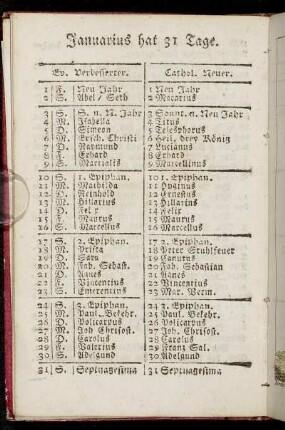 Januarius hat 31 Tage.
Ev. Verbesserter. Cathol. Neuer.
1 F. Neu Jahr 1 Neu Jahr
2 S. Abel / Seth 2 Macarius
3 S. S. n. N. Jahr 3 Sonnt. n. Neu Jahr
4 M. Isabella 4 Titus
5 D. Simeon 5 Telesphorus
6 M. Ersch. Christi 6 Heil. drey König
7 D. Raymund 7 Lucianus
8 F. Erhard 8 Erhard
9 S. Martialis 9 Marcellinus
10 S. 1. Epiphan. 10 1. Epiphan.
11 M. Mathilda 11 Hyginus
12 D. Reinhold 12 Ernestus
13 M. Hillarius 13 Hillarius
14 D. Felix 14 Felix
15 F. Maurus 15 Maurus
16 S. Marcellus 16 Marcellus
17 S. 2. Epiphan. 17 2. Epiphan.
18 M. Prisca 18 Peter Stuhlfeuer
19 D. Sara 19 Canutus
20 M. Fab. Sebast. 20 Fab. Sebastian
21 D. Agnes 21 Agnes
22 F. Vincentius 22 Vincentius
23 S. Emerentius 23 Mar. Verm.
24 S. 3. Epiphan. 24 3. Epiphan.
25 M. Paul. Bekehr. 25 Paul. Bekehr.
26 D. Policarpus 26 Policarpus
27 M. Joh Chrisost. 27 Joh. Chrisost.
28 D. Carolus 28 Carolus
29 F. Valerius 29 Franz Sal.
30 S. Adelgund 30 Adelgund
31 S. Septuagesima 31 Septuagesima